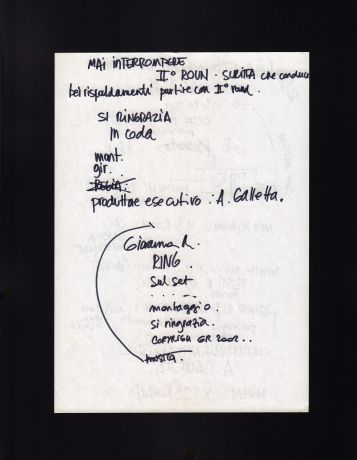 MAI INTERROMPERE
II° ROUN. SCRITTA che conduce
bei rispaldamenti partire con II° round.
SI RINGRAZIA
In coda
mont.
gir.
REGIA:
produttore esecutivo: A. Galletta.
Giovanna R.
RING.
Sul set
......
montaggio.
si ringrazia.
COPYRIGH GR 2002..